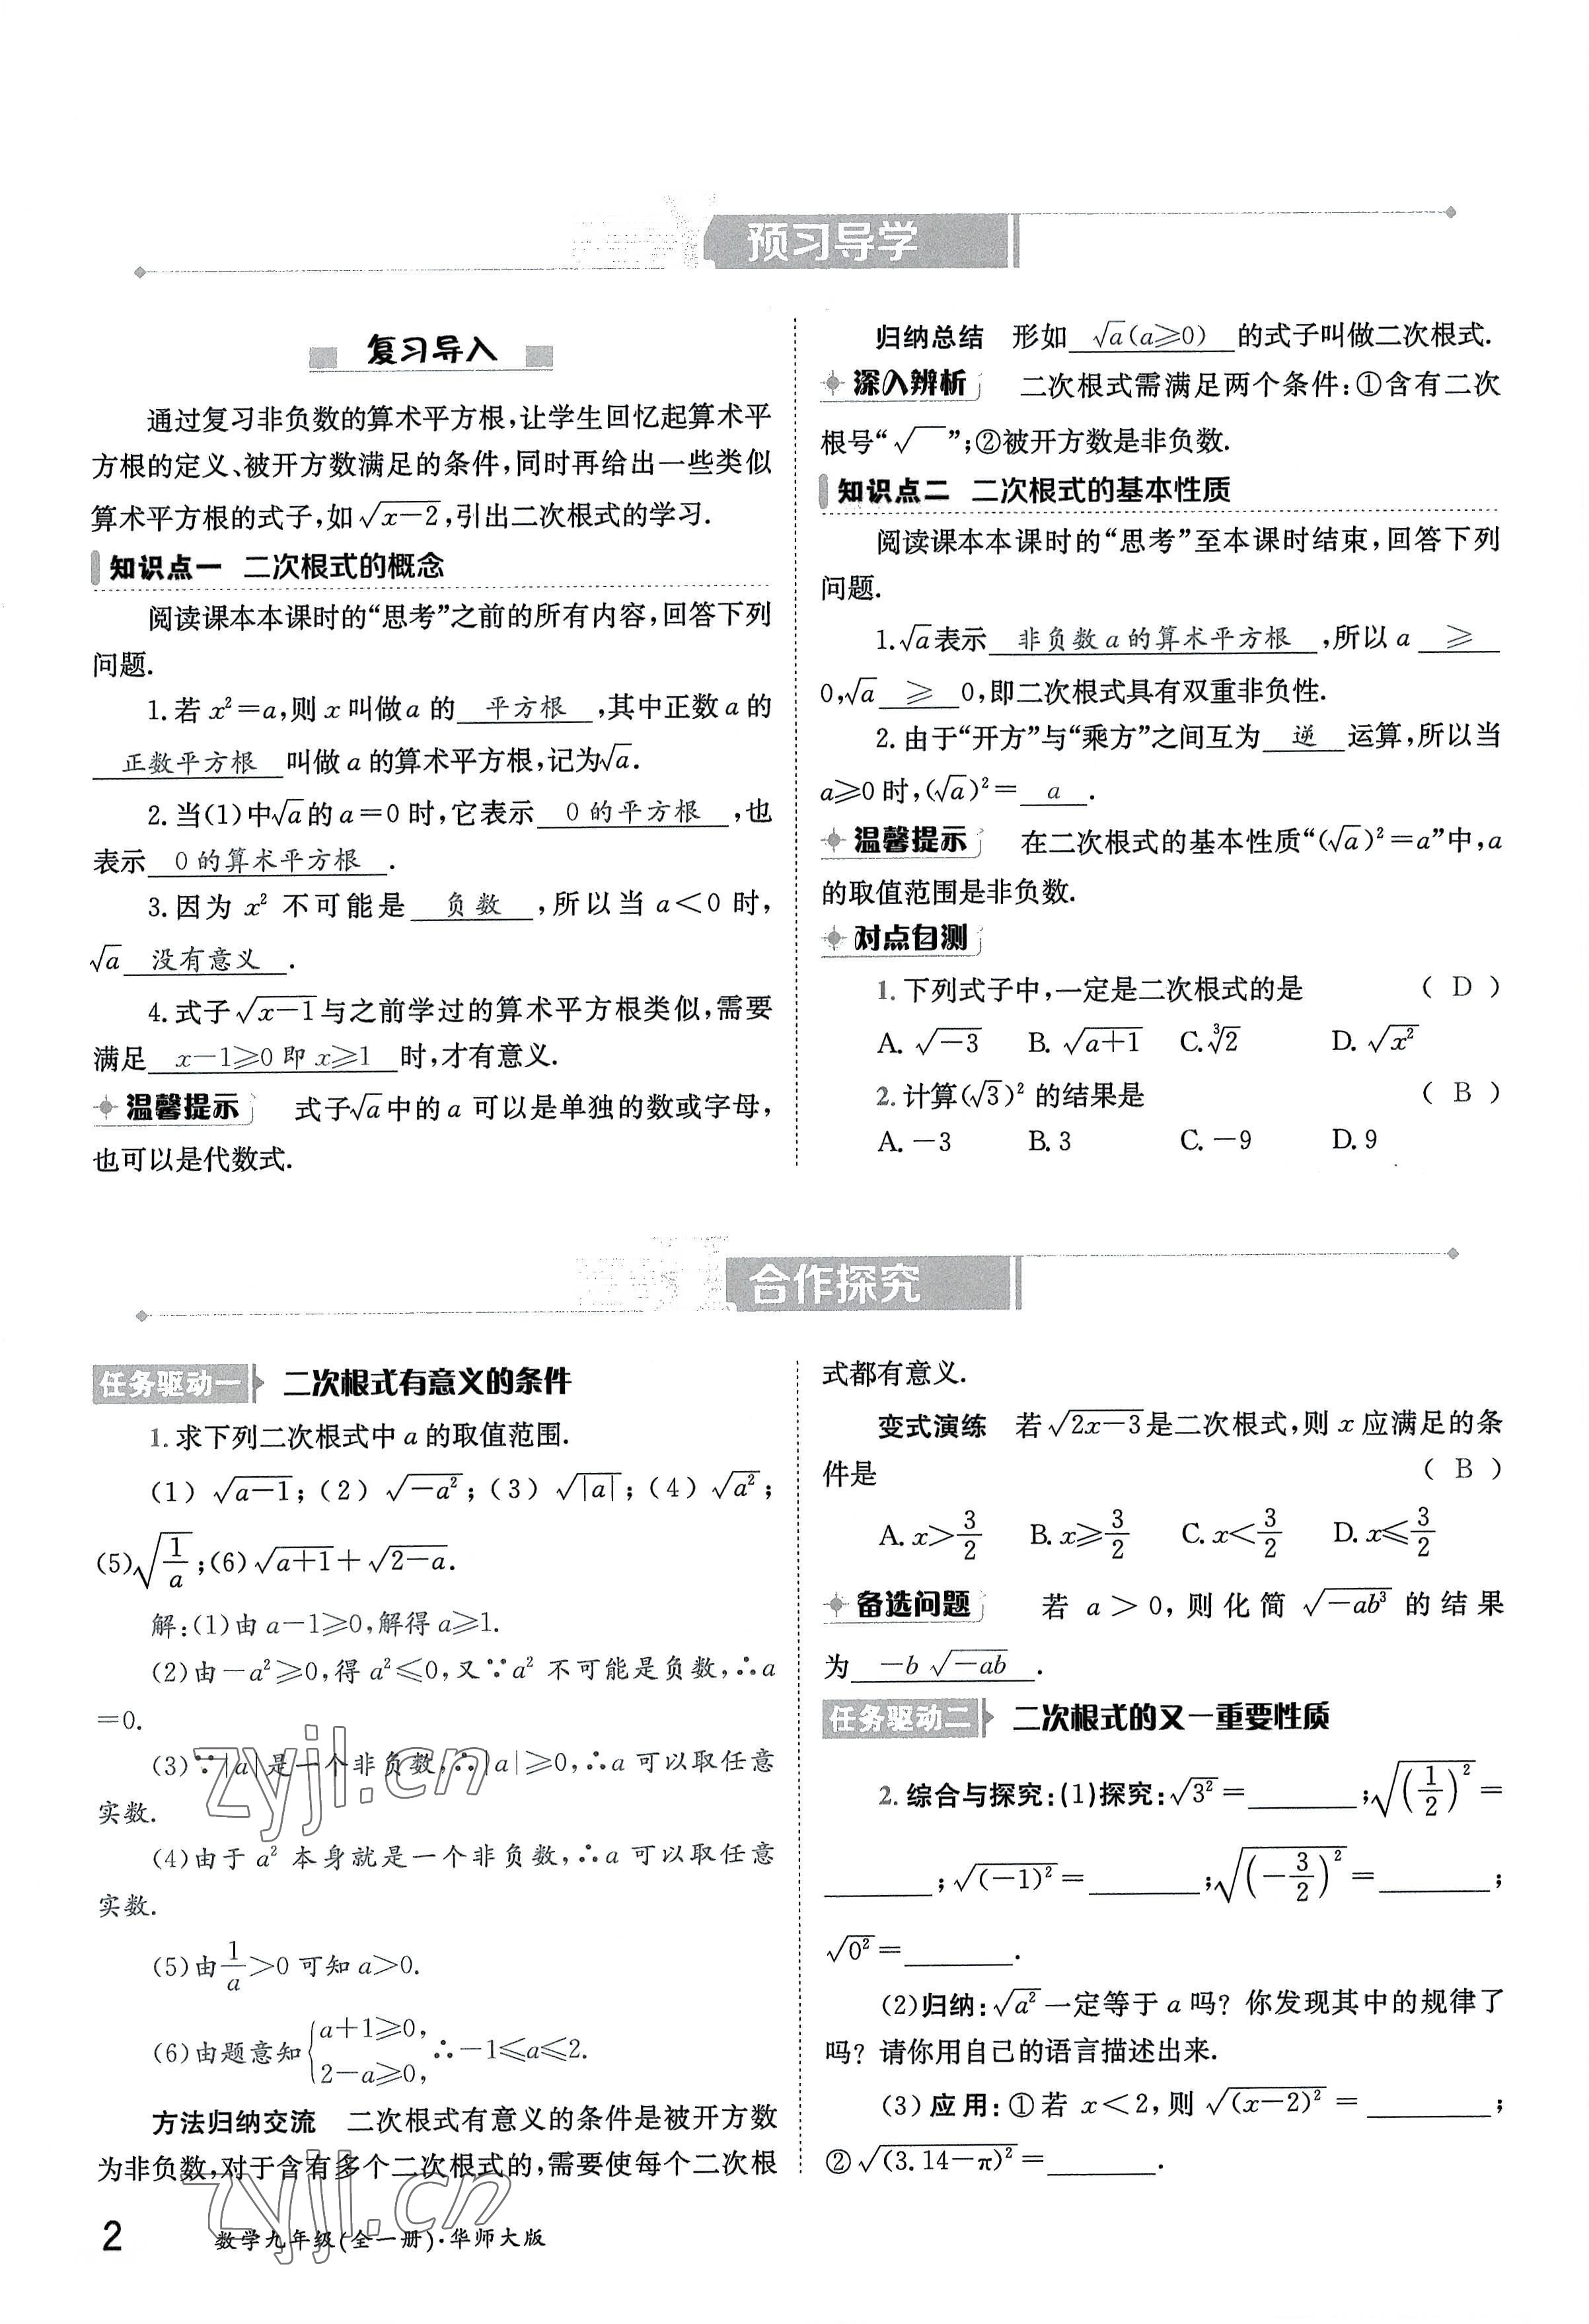 预习导学
复习导入
通过复习非负数的算术平方根,让学生回忆起算术平
方根的定义、被开方数满足的条件,同时再给出一些类似
算术平方根的式子,如√(x-2),引出二次根式的学习.
知识点一 二次根式的概念
阅读课本本课时的“思考”之前的所有内容,回答下列
问题.
1.若 x²=a,则 x 叫做 a 的 平方根 ,其中正数 a 的
正数平方根 叫做 a 的算术平方根,记为√a.
2.当(1)中√a的 a=0 时,它表示 0 的平方根 ,也
表示 0 的算术平方根 .
3.因为 x² 不可能是 负数 ,所以当 a<0 时,
√a 没有意义 .
4.式子√(x-1)与之前学过的算术平方根类似,需要
满足 x-1≥0 即 x≥1 时,才有意义.
温馨提示 式子√a中的 a 可以是单独的数或字母,
也可以是代数式.
归纳总结 形如 √a(a≥0) 的式子叫做二次根式.
深入辨析 二次根式需满足两个条件:①含有二次
根号“√ ”;②被开方数是非负数.
知识点二 二次根式的基本性质
阅读课本本课时的“思考”至本课时结束,回答下列
问题.
1.√a表示 非负数 a 的算术平方根 ,所以 a ≥
0,√a ≥ 0,即二次根式具有双重非负性.
2.由于“开方”与“乘方”之间互为 逆 运算,所以当
a≥0 时,(√a)²= a .
温馨提示 在二次根式的基本性质“(√a)²=a”中,a
的取值范围是非负数.
对点自测
1.下列式子中,一定是二次根式的是 ( D )
A.√(-3) B.√(a+1) C.∛2 D.√(x²)
2.计算(√3)² 的结果是 ( B )
A.-3 B.3 C.-9 D.9
合作探究
任务驱动一 二次根式有意义的条件
1.求下列二次根式中 a 的取值范围.
(1) √(a-1);(2) √(-a²);(3) √|a|;(4) √(a²);
(5)√(1/a);(6)√(a+1)+√(2-a).
解:(1)由 a-1≥0,解得 a≥1.
(2)由-a²≥0,得 a²≤0,又∵a² 不可能是负数,∴a
=0.
(3)∵|a|是一个非负数,∴|a|≥0,∴a 可以取任意
实数.
(4)由于 a² 本身就是一个非负数,∴a 可以取任意
实数.
(5)由1/a>0 可知 a>0.
(6)由题意知{a+1≥0, 2-a≥0, ∴-1≤a≤2.
方法归纳交流 二次根式有意义的条件是被开方数
为非负数,对于含有多个二次根式的,需要使每个二次根
式都有意义.
变式演练 若√(2x-3)是二次根式,则 x 应满足的条
件是 ( B )
A.x>3/2 B.x≥3/2 C.x<3/2 D.x≤3/2
备选问题 若 a>0,则化简 √(-ab³) 的结果
为 -b√(-ab) .
任务驱动二 二次根式的又一重要性质
2.综合与探究:(1)探究:√(3²)=______;√((1/2)²)=
______;√((-1)²)=______;√((-3/2)²)=______;
√(0²)=______.
(2)归纳:√(a²)一定等于 a 吗? 你发现其中的规律了
吗? 请你用自己的语言描述出来.
(3)应用:①若 x<2,则 √((x-2)²)=______;
②√((3.14-π)²)=______.
zyjl.cn
zyjl.cn
2 数学九年级(全一册)·华师大版